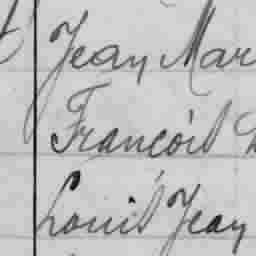 Jean Mar
François
Louis Jean